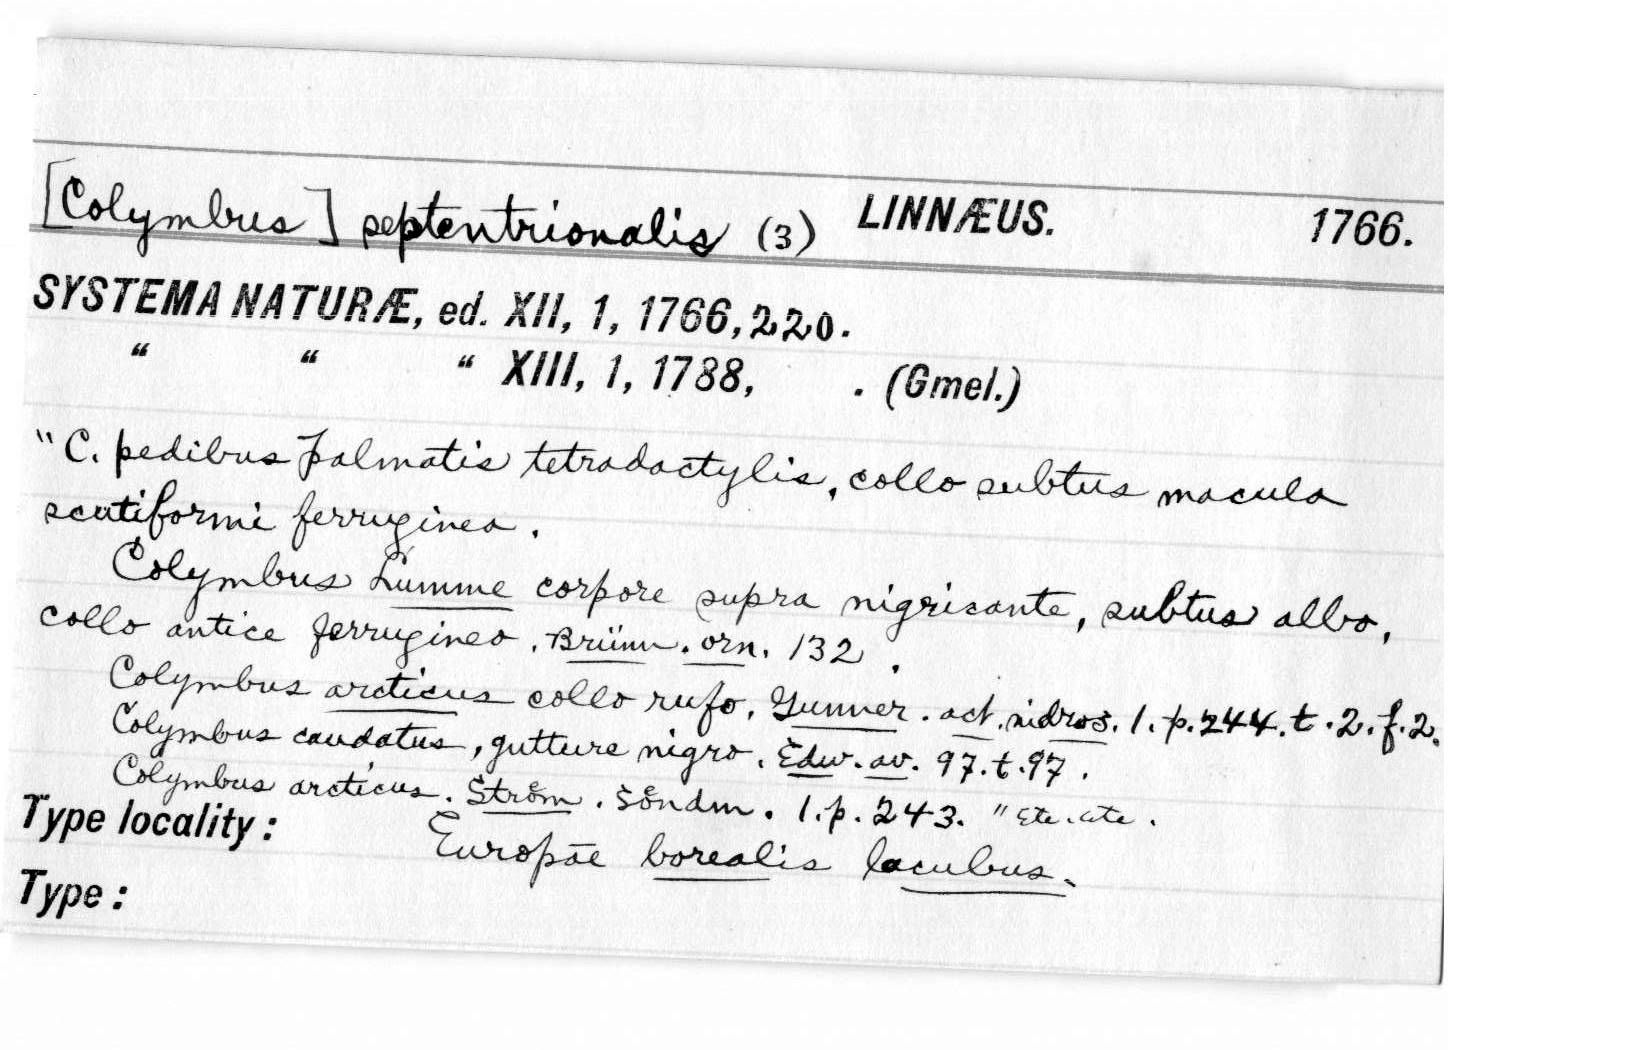 [Colymbus] septentrionalis (3) LINNÆUS. 1766.
SYSTEMA NATURÆ, ed. XII, 1, 1766, 220.
“ “ “ XIII, 1, 1788, . (Gmel.)
"C. pedibus palmatis tetradactylis, collo subtus macula
scutiformi ferruginea.
Colymbus Lumme corpore supra nigricante, subtus albo,
collo antice ferrugineo. Brünn. orn. 132.
Colymbus arcticus collo rufo. Gunner. act. nidros. 1. p. 244. t. 2. f. 2.
Colymbus caudatus, gutture nigro. Edw. av. 97. t. 97.
Colymbus arcticus. Ström. söndm. 1. p. 243. " Etc. etc.
Type locality: Europae borealis lacubus.
Type: